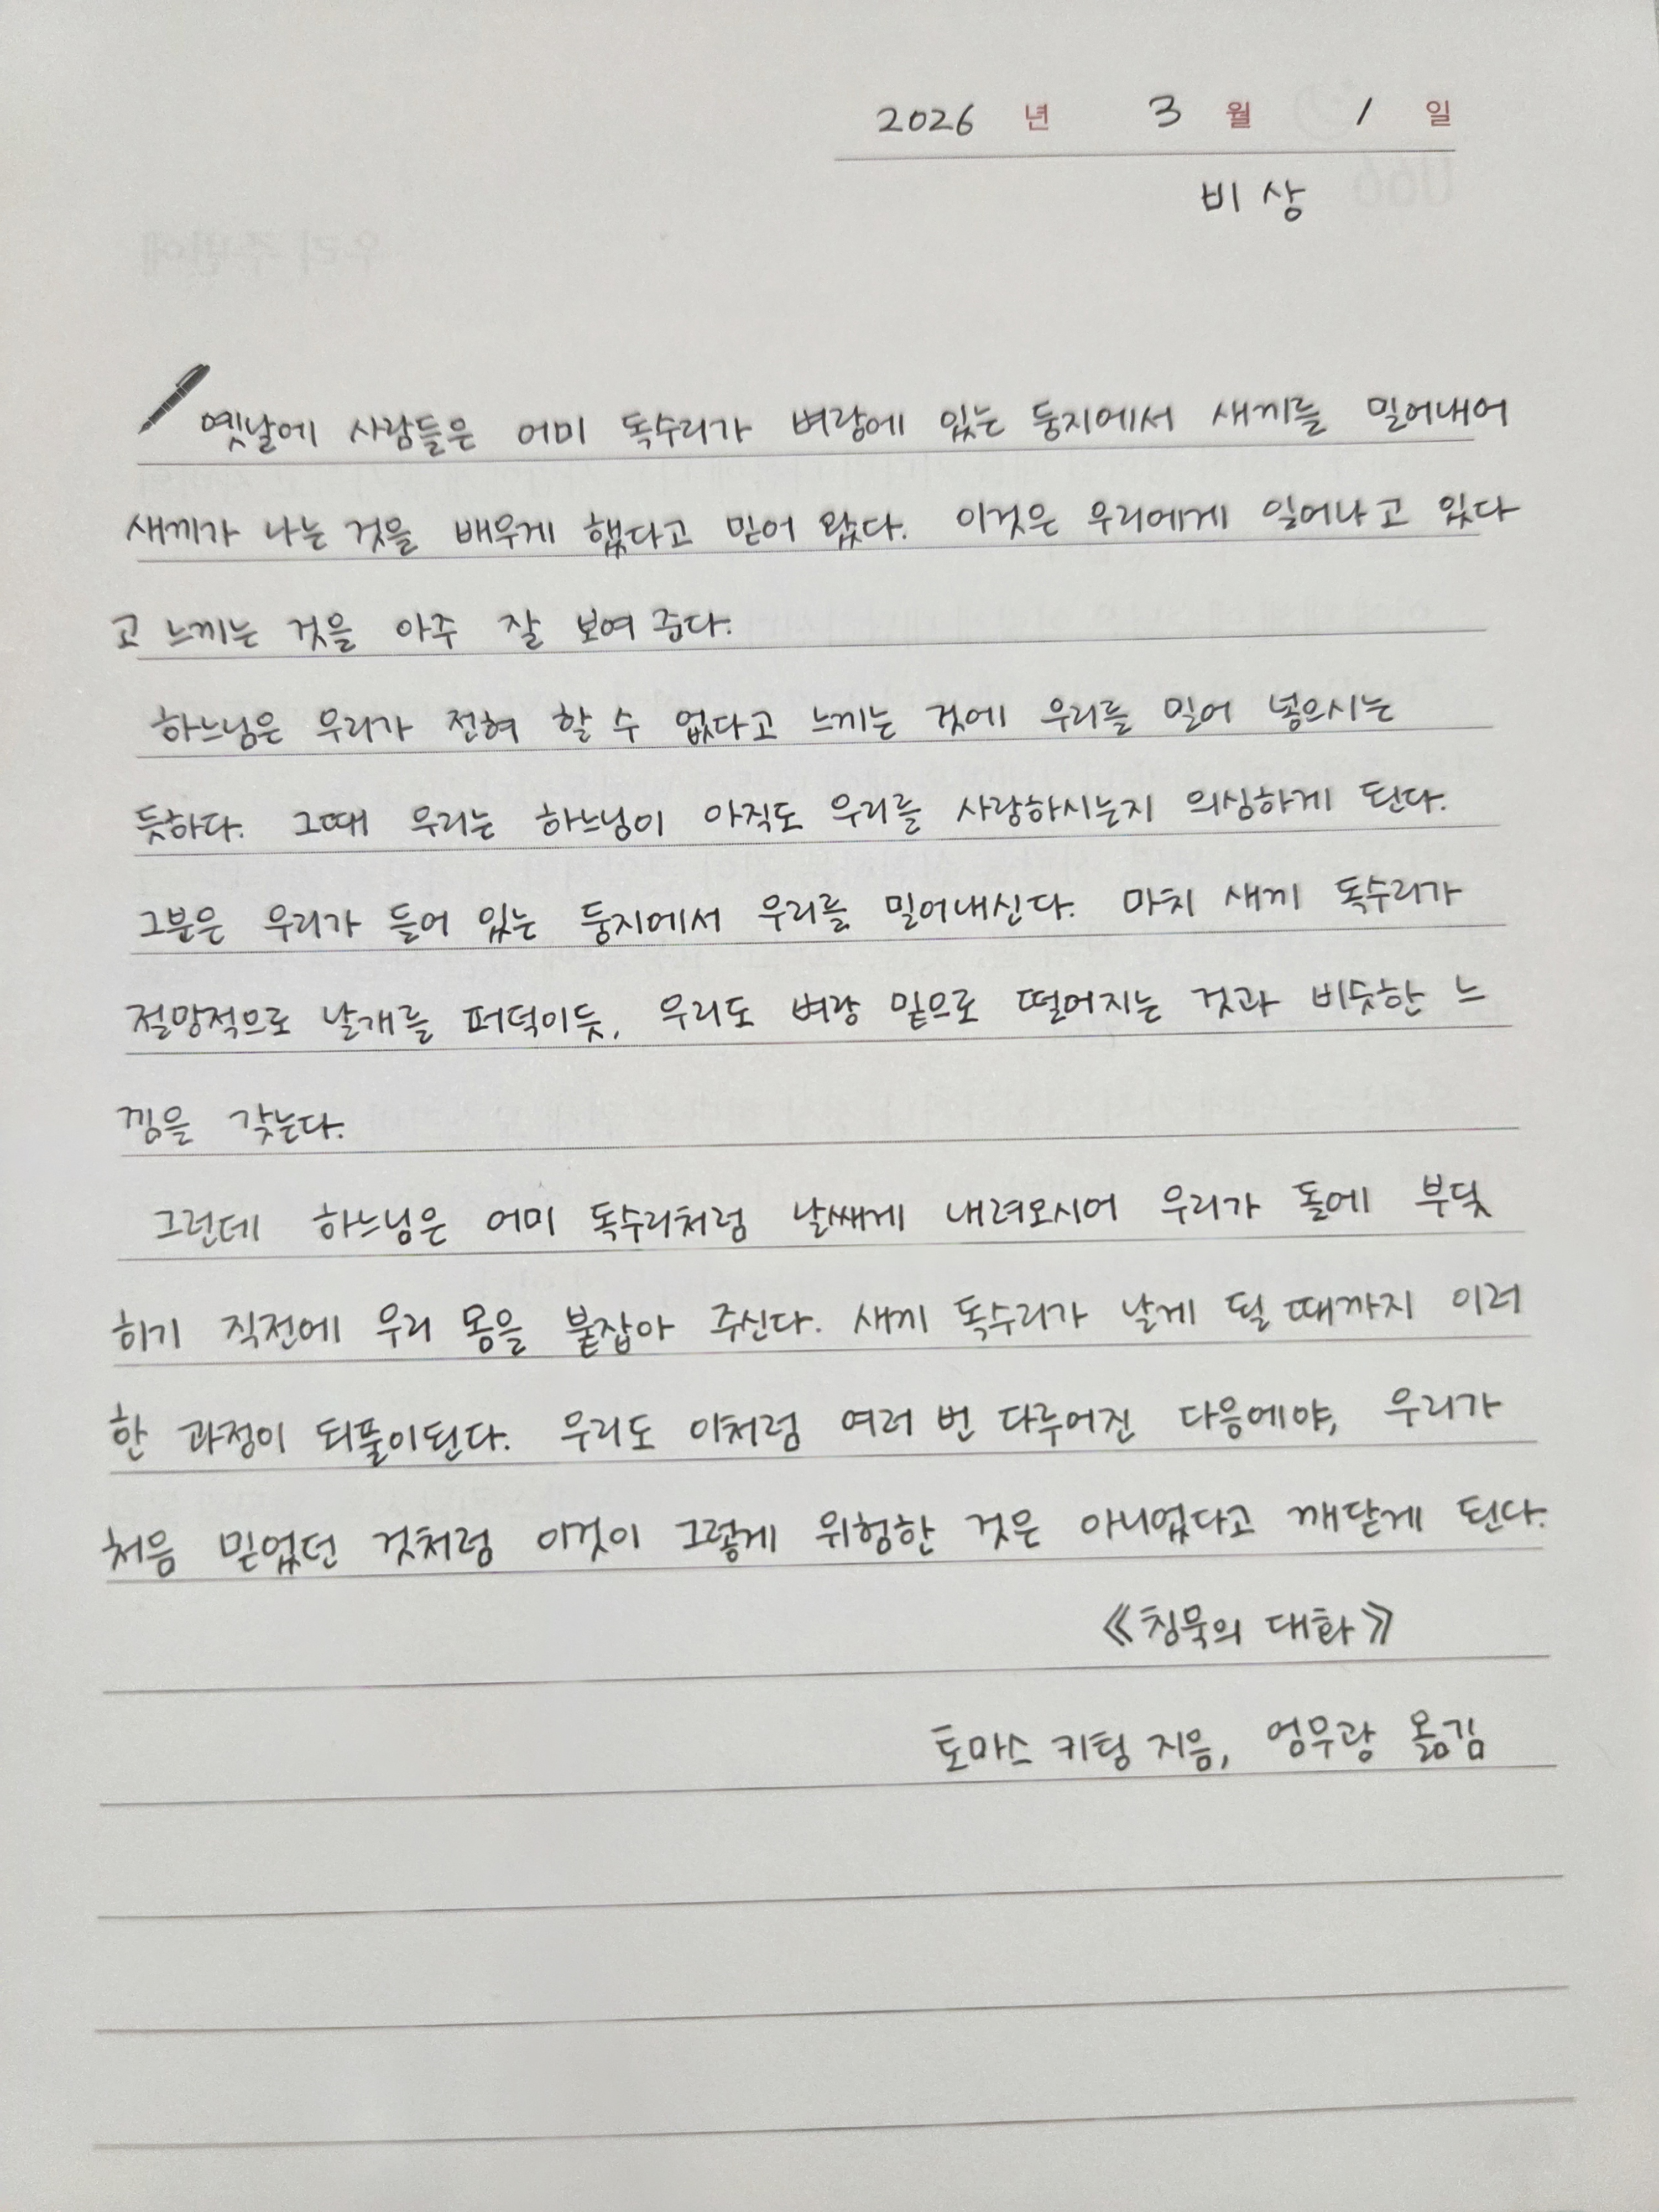 2026 년 3 월 1 일
비상
옛날에 사람들은 어미 독수리가 벼랑에 있는 둥지에서 새끼를 밀어내어
새끼가 나는 것을 배우게 했다고 믿어 왔다. 이것은 우리에게 일어나고 있다
고 느끼는 것을 아주 잘 보여 준다.
하느님은 우리가 전혀 할 수 없다고 느끼는 것에 우리를 밀어 넣으시는
듯하다. 그때 우리는 하느님이 아직도 우리를 사랑하시는지 의심하게 된다.
그분은 우리가 들어 있는 둥지에서 우리를 밀어내신다. 마치 새끼 독수리가
절망적으로 날개를 퍼덕이듯, 우리도 벼랑 밑으로 떨어지는 것과 비슷한 느
낌을 갖는다.
그런데 하느님은 어미 독수리처럼 날쌔게 내려오시어 우리가 돌에 부딪
히기 직전에 우리 몸을 붙잡아 주신다. 새끼 독수리가 날게 될 때까지 이러
한 과정이 되풀이된다. 우리도 이처럼 여러 번 다루어진 다음에야, 우리가
처음 믿었던 것처럼 이것이 그렇게 위험한 것은 아니었다고 깨닫게 된다.
《침묵의 대화》
토마스 키팅 지음, 엄무광 옮김